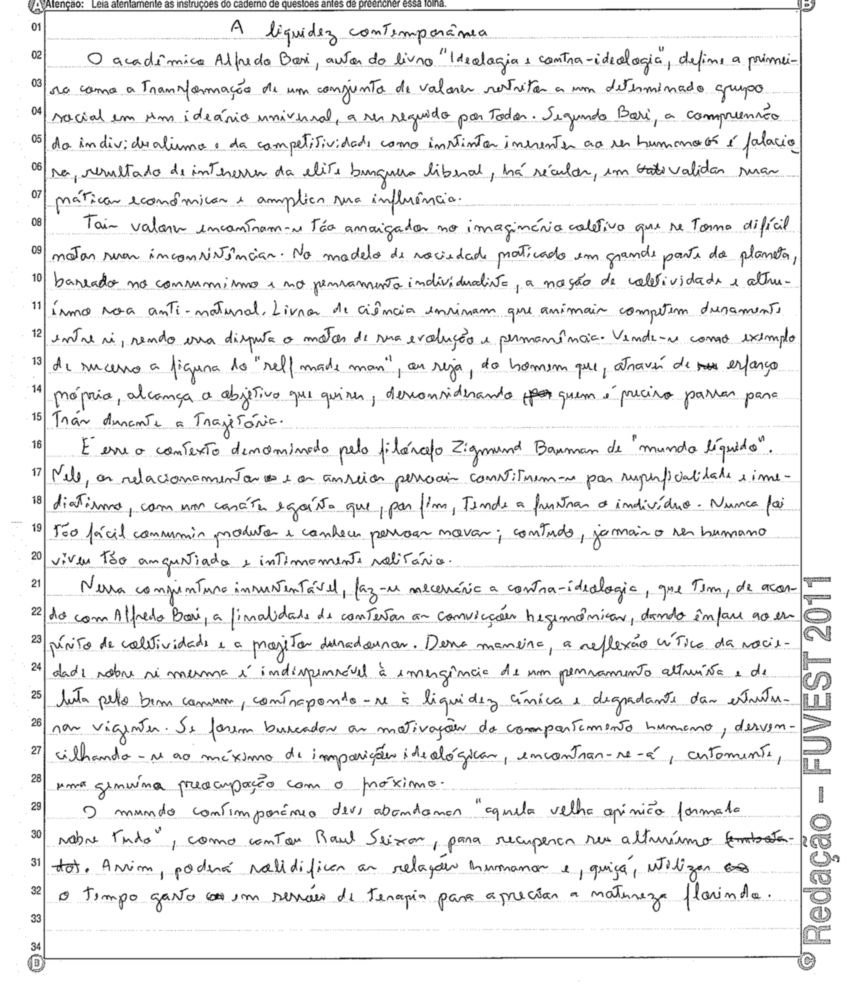 Atenção: Leia atentamente as instruções do caderno de questões antes de preencher essa folha.
A B
01 A liquidez contemporânea
02 O acadêmico Alfredo Bosi, autor do livro "Ideologia e contra-ideologia", define a primei-
03 ra como a transformação de um conjunto de valores restritos a um determinado grupo
04 social em um ideário universal, a ser seguido por todos. Segundo Bosi, a compreensão
05 do individualismo e da competitividade como instintos inerentes ao ser humano é falacio
06 sa, resultado do interesse da elite burguesa liberal, há séculos, em validar suas
07 práticas econômicas e ampliar sua influência.
08 Tais valores encontram-se tão arraigados no imaginário coletivo que se torna difícil
09 notar suas inconsistências. No modelo de sociedade praticado em grande parte do planeta,
10 baseado no consumismo e no pensamento individualista, a noção de coletividade e altru-
11 ísmo soa anti-natural. Livros de ciência ensinam que animais competem duramente
12 entre si, sendo essa disputa o motor de sua evolução e permanência. Vende-se como exemplo
13 de sucesso a figura do "self made man", ou seja, do homem que, através de esforço
14 próprio, alcança o objetivo que quiser, desconsiderando quem é preciso passar para
15 trás durante a trajetória.
16 É esse o contexto denominado pelo filósofo Zigmund Bauman de "mundo líquido".
17 Nele, os relacionamentos e os anseios pessoais constituem-se por superficialidade e ime-
18 diatismo, com um caráter egoísta que, por fim, tende a frustrar o indivíduo. Nunca foi
19 tão fácil consumir produtos e conhecer pessoas novas; contudo, jamais o ser humano
20 viveu tão angustiado e intimamente solitário.
21 Nessa conjuntura insustentável, faz-se necessária a contra-ideologia, que tem, de acor-
22 do com Alfredo Bosi, a finalidade de contestar as convicções hegemônicas, dando ênfase ao es-
23 pírito de coletividade e a projetos duradouros. Dessa maneira, a reflexão crítica da socie-
24 dade sobre si mesma é indispensável à emergência de um pensamento altruísta e de
25 luta pelo bem comum, contrapondo-se à liquidez cínica e degradante das estrutu-
26 ras vigentes. Se forem buscadas as motivações do comportamento humano, desven-
27 cilhando-se ao máximo de imposições ideológicas, encontrar-se-á, certamente,
28 uma genuína preocupação com o próximo.
29 O mundo contemporâneo deve abandonar "aquela velha opinião formada
30 sobre tudo", como cantou Raul Seixas, para recuperar seu altruísmo
31 . Assim, poderá solidificar as relações humanas e, quiçá, utilizar
32 o tempo gasto em sessões de terapia para apreciar a natureza florindo.
33
34
D C
Redação – FUVEST 2011